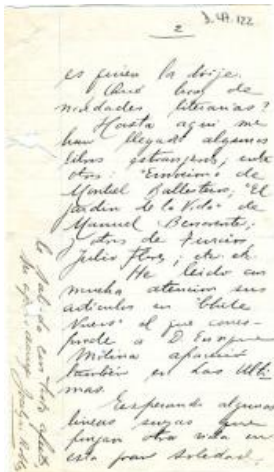 2
es quien la dirije.
Qué hay de
novedades literarias?
Hasta aquí me
han llegado algunos
libros estranjeros, entre
otros: "Emoción de
Montiel Ballesteros; "El
Jardín de la Vida" de
Manuel Benavente;
otros de
Julio Flores, etc. etc.
He leído con
mucha atención sus
artículos en "Chile
Nuevo" el que corres-
ponde a D. Enrique
Molina apareció
también en Las Ulti
mas.
Esperando algunas
líneas suyas que
pongan otra vida en
esta gran soledad.
lo saluda con todo afecto